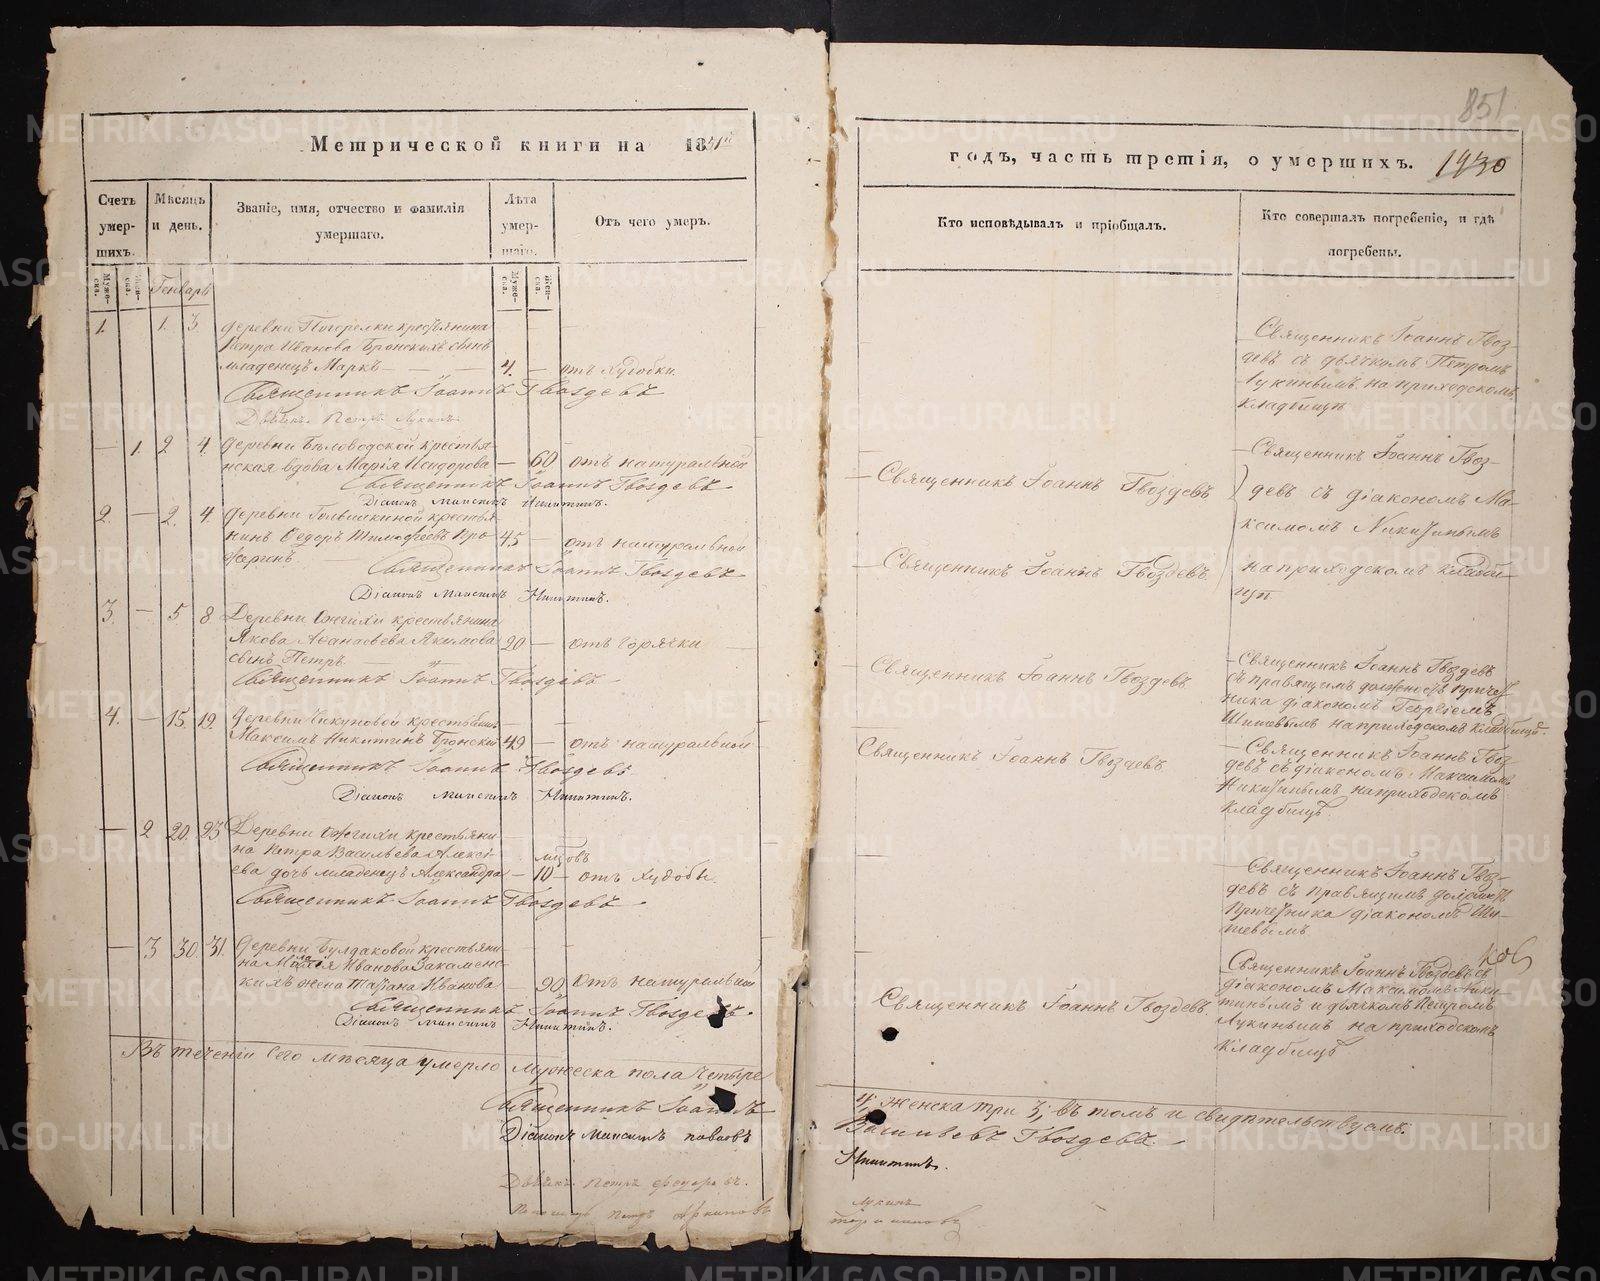 Метрической книги на 1851й
Счетъ умер-шихъ.
Мѣсяцъ и день.
Званіе, имя, отчество и фамилія умершаго.
Лѣта умер-шаго.
Отъ чего умеръ.
Муже-ска.
Жен-ска.
Генварь
Муже-ска.
Жен-ска.
1. 1. 3. деревни Погорелки крестьянина
Петра Иванова Бронскихъ сынъ
младенецъ Маркъ 4. отъ худобки.
Священникъ Іоаннъ Гвоздевъ
Дьячекъ Петръ Лукинъ.
1. 2 4. деревни Бѣловодской крестья-
нская вдова Марія Исидорова 60 отъ натуральной
Священникъ Іоаннъ Гвоздевъ.
Діаконъ Максимъ Никитинъ.
2. 2. 4. деревни крестья-
нинъ Ѳедоръ Тимофѣевъ 45 отъ натуральной
Священникъ Іоаннъ Гвоздевъ
Діаконъ Максимъ Никитинъ.
3. 5 8 Деревни Ожгихи крестьянина
Якова Аѳанасьева Якимова 20 отъ горячки
сынъ Петръ
Священникъ Іоаннъ Гвоздевъ
4. 15 19. Деревни Чикуновой крестьянинъ
Максимъ Никитинъ Бронский 49 отъ натуральной
Священникъ Іоаннъ Гвоздевъ.
Діаконъ Максимъ Никитинъ.
2 20. 23 Деревни Ожгихи крестьяни-
на Петра Васильева Алексѣ-
ева дочь младенецъ Александра 10 отъ худобы
Священникъ Іоаннъ Гвоздевъ.
3 30. 31. Деревни Булдаковой крестьяни-
на Иванова Закаменс-
кихъ жена Татіана Иванова 90 Отъ натуральной
Священникъ Іоаннъ Гвоздевъ.
Діаконъ Максимъ Никитинъ.
Въ теченіи сего мѣсяца умерло мужеска пола четыре
Священникъ Іоаннъ
Діаконъ Максимъ
Дьячекъ Петръ
851
годъ, часть третія, о умершихъ. 1930
Кто исповѣдывалъ и пріобщалъ.
Кто совершалъ погребеніе, и гдѣ погребены.
Священникъ Іоаннъ Гвоз-
девъ съ дьячкомъ Петромъ
Лукинымъ на приходскомъ
кладбищѣ
Священникъ Іоаннъ Гвоздевъ
Священникъ Іоаннъ Гвоз-
девъ съ діакономъ Ма-
ксимомъ Никитинымъ
Священникъ Іоаннъ Гвоздевъ
на приходскомъ кладби-
щѣ
Священникъ Іоаннъ Гвоздевъ
Священникъ Іоаннъ Гвоздевъ
съ правящимъ должность приче-
тника діакономъ Георгіемъ
Шишевымъ на приходскомъ кладбищѣ.
Священникъ Іоаннъ Гвоздевъ
Священникъ Іоаннъ Гвоз-
девъ съ діакономъ Максимомъ
Никитинымъ на приходскомъ
кладбищѣ.
Священникъ Іоаннъ Гвоз-
девъ съ правящимъ должность
Причетника діакономъ Ши-
шевымъ
Священникъ Іоаннъ Гвоздевъ.
Священникъ Іоаннъ Гвоздевъ съ
діакономъ Максимомъ Ники-
тинымъ и дьячкомъ Петромъ
Лукинымъ на приходскомъ
кладбищѣ
4, женска три 3; въ томъ и свидѣтельствуемъ.
Васильевъ Гвоздевъ.
Никитинъ.
Лукинъ
METRIKI.GASO-URAL.RU